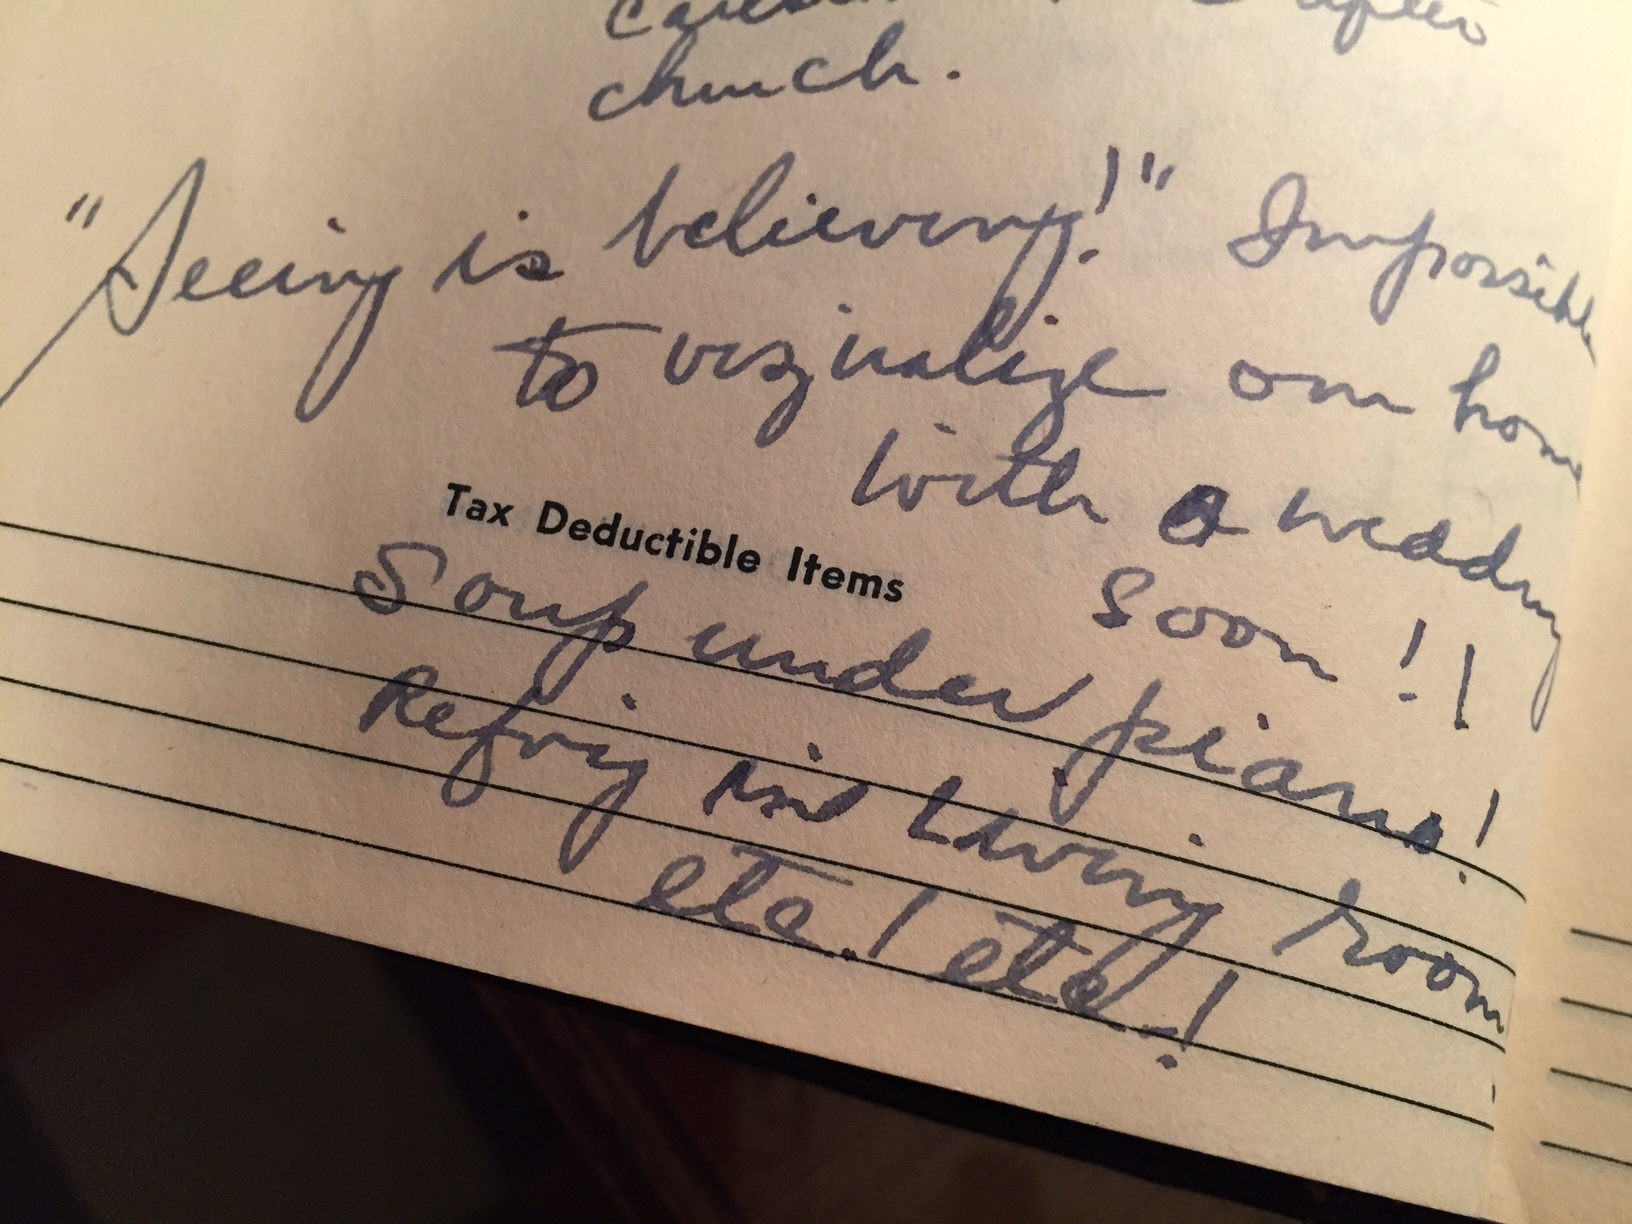 after
church.
"Seeing is believing!" Impossible
to vizualize our home
with a wedding
soon!!
Tax Deductible Items
Soup under piano!
Refrig in Living room
etc.! etc.!